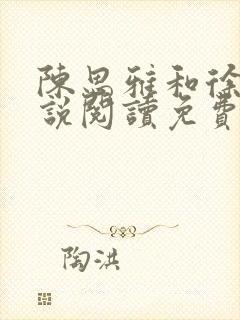 陳思雅和徐
說閱讀免費
陶洪